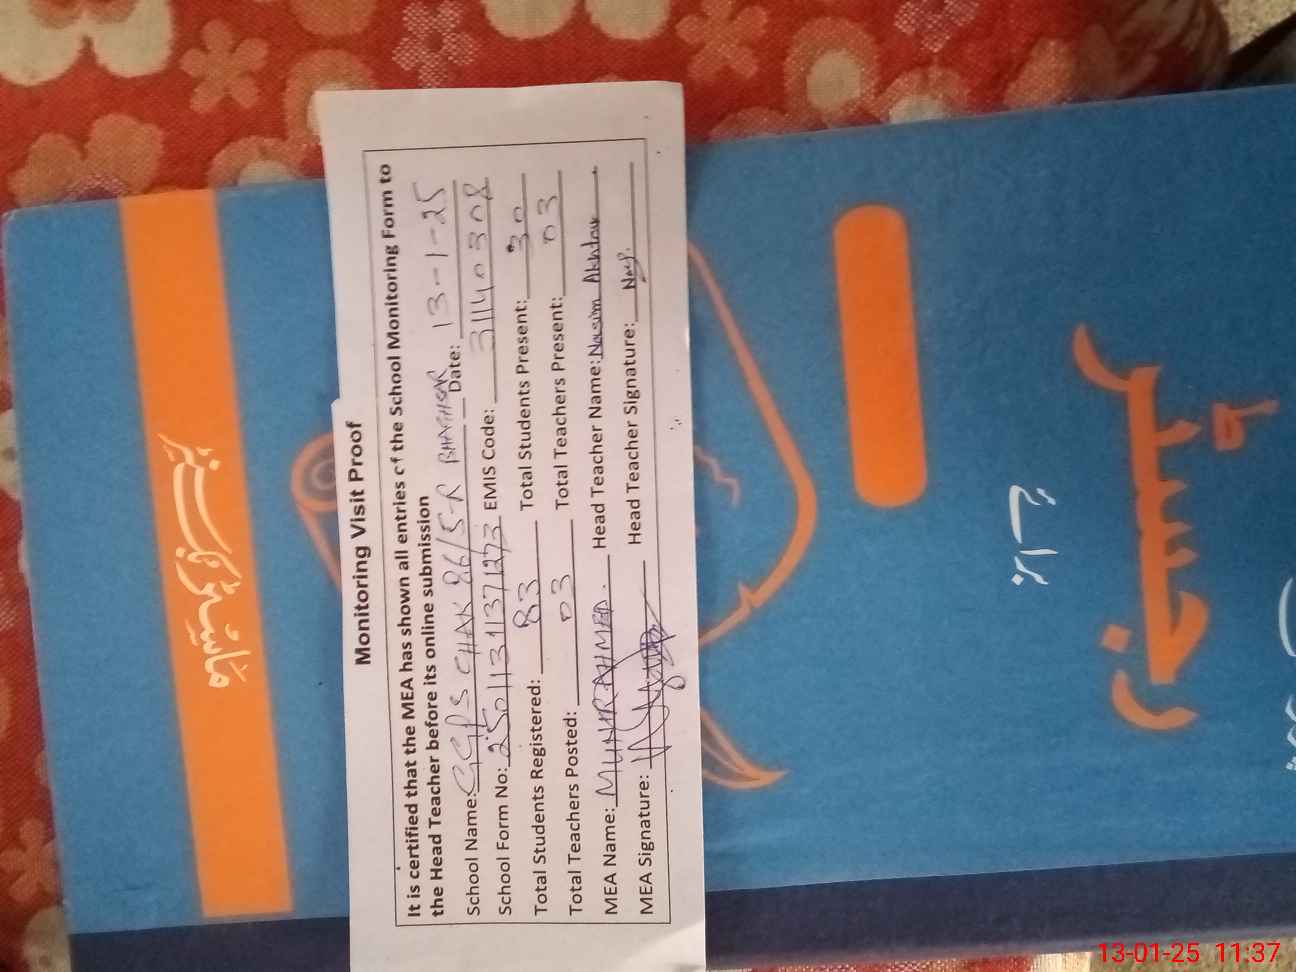 Monitoring Visit Proof
It is certified that the MEA has shown all entries of the School Monitoring Form to
the Head Teacher before its online submission
School Name: GGPS CHAK 86/5-R BHAGHSAR Date: 13-1-25
School Form No: 25011311371273 EMIS Code: 31140308
Total Students Registered: 83 Total Students Present: 30
Total Teachers Posted: 03 Total Teachers Present: 03
MEA Name: MUNIR AHMED. Head Teacher Name: Nasim Akhtar
MEA Signature: Head Teacher Signature:
رجسٹر
برائے
13-01-25 11:37